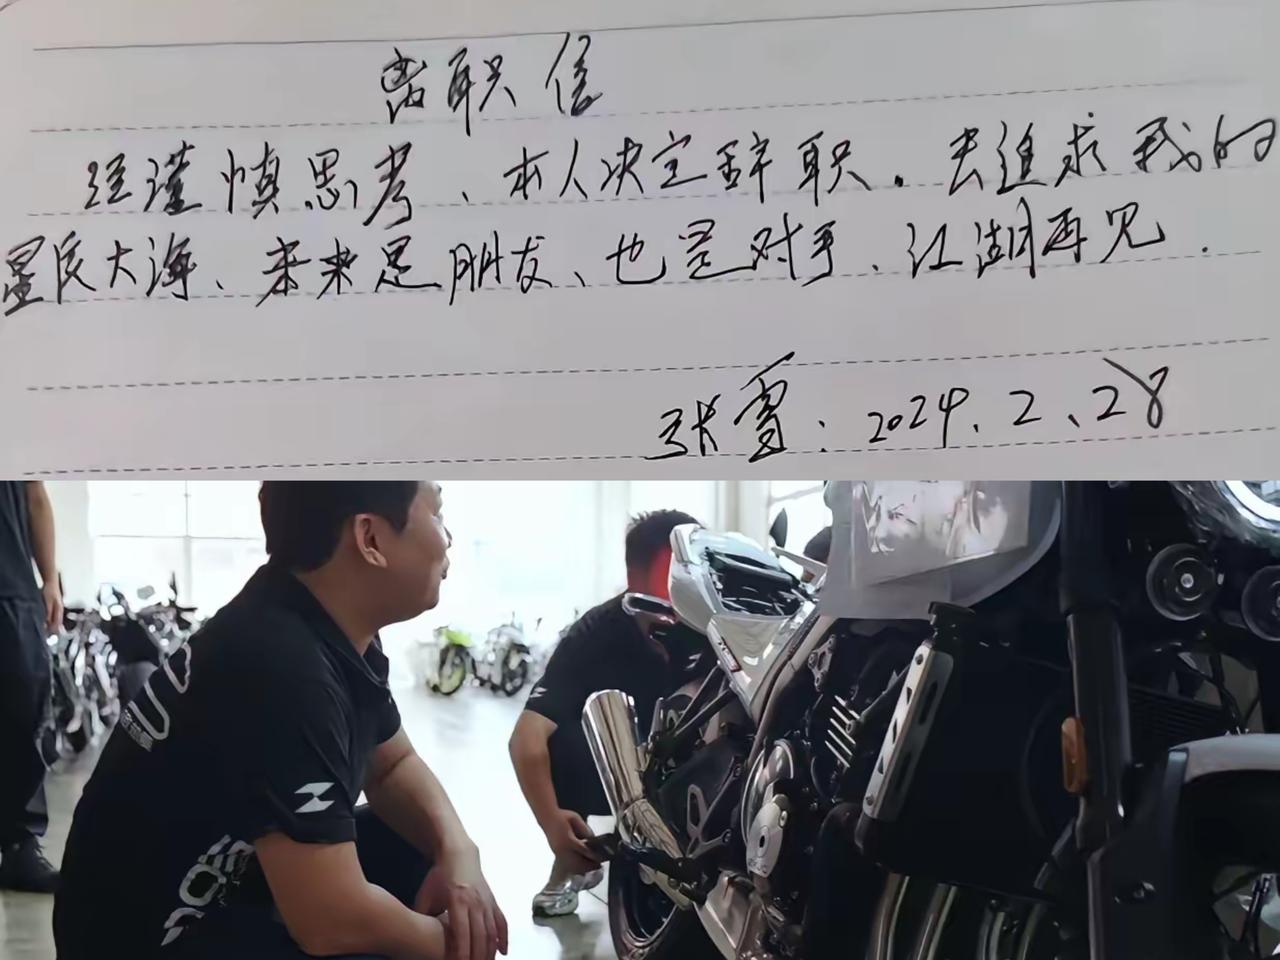 离职信
经谨慎思考、本人决定辞职。去追求我的
星辰大海、未来是朋友、也是对手、江湖再见.
张雪: 2024.2、28